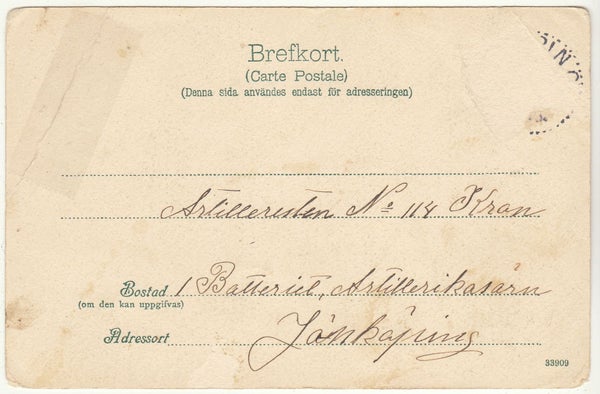 Brefkort.
(Carte Postale)
(Denna sida användes endast för adresseringen)
Artilleristen No 114 Kron
Bostad 1 Batteriet, Artillerikasärn
(om den kan uppgifvas)
Adressort Jönköping
33909